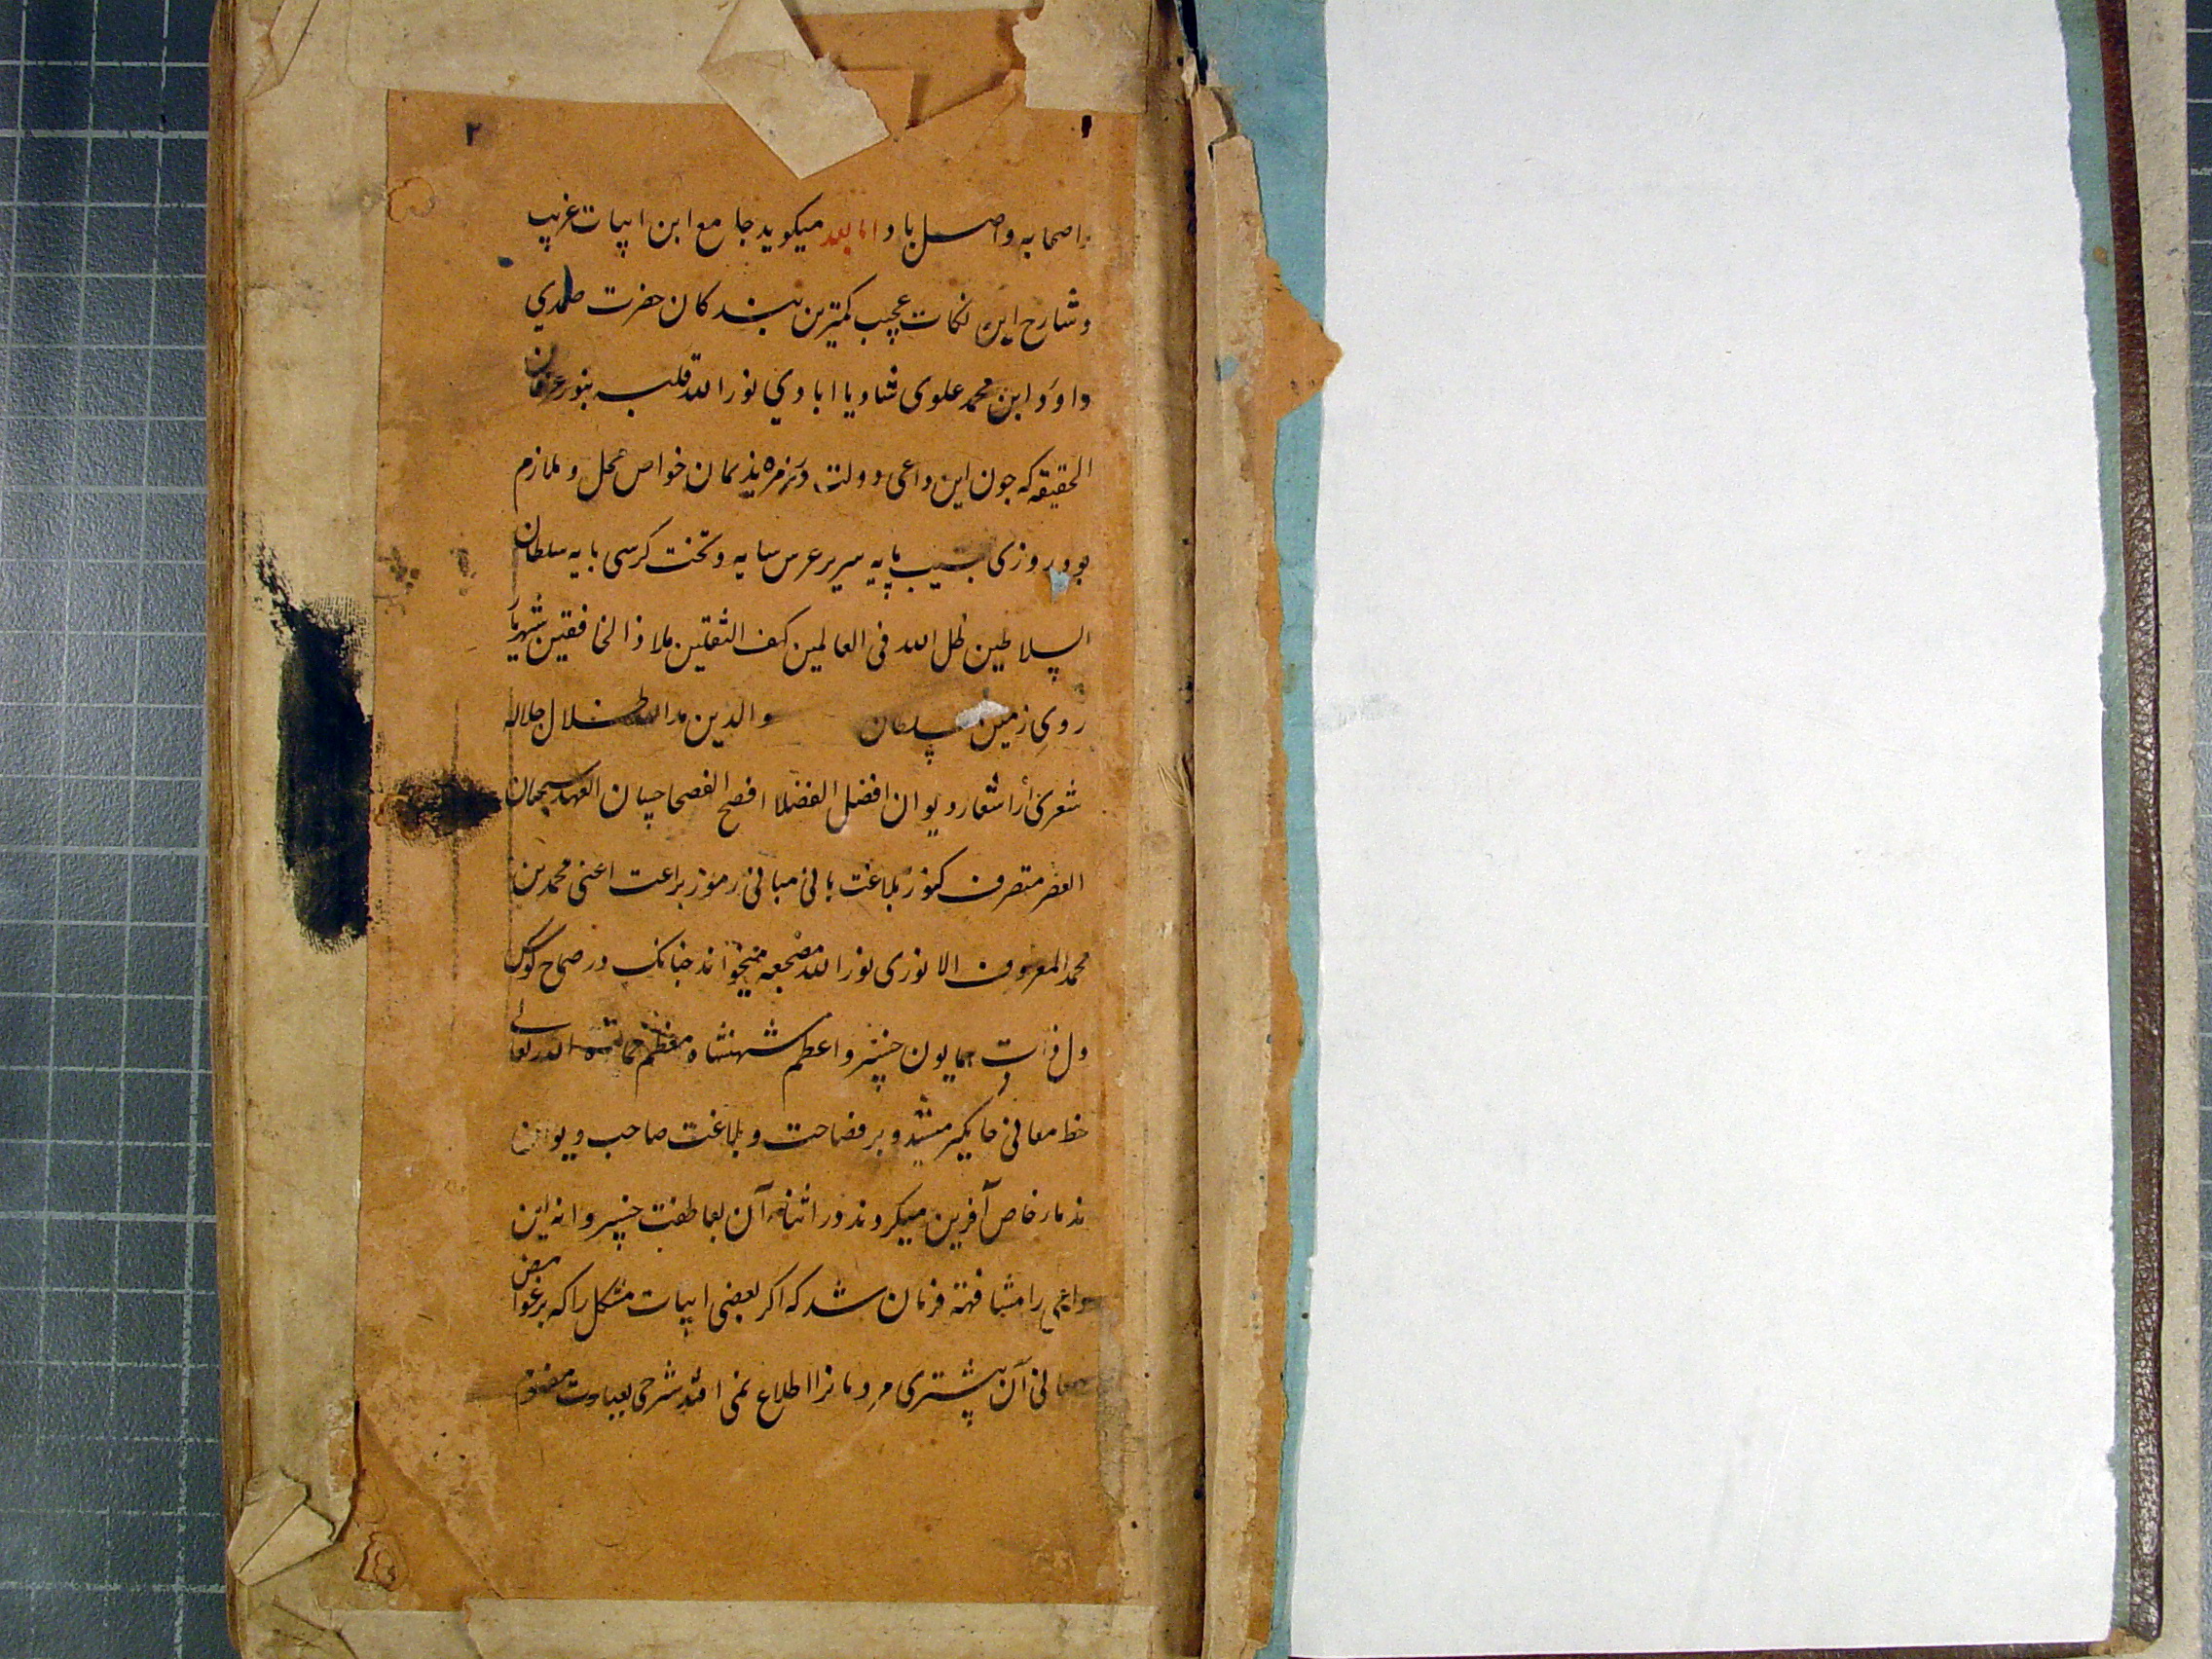 ۲
۱
واصحابه واصل باد اما بعد میکوید جامع این ابیات غریب
وشارح این نکات عجیب کمترین بندکان حضرت صمدی
داود ابن محمد علوی شادیا ابادی نور الله قلبه بنور عرفان
الحقیقه که جون این داعی دولت در زمره ندیمان خواص محل و ملازم
بود روزی بسیب پایه سریر عرس سایه و تخت کرسی بایه سلطان
السلاطین ظل الله فی العالمین کهف الثقلین ملاذ الخافقین شهریار
روی زمین سلطان والدین مد الله ظلال جلاله
شعری از اشعار دیوان افضل الفضلا افصح الفصحا حسان العهد سحبان
العصر متصرف کنوز بلاغت بانی مبانی رموز براعت اعنی محمد بن
محمد المعروف الانوری نور الله مضجعه میخواند جنانک در صماخ کوش
دل ذات همایون خسرو اعظم شهنشاه معظم الله تعالی
حظ معانی جایکیر میشد و بر فصاحت و بلاغت صاحب دیوان
ندمار خاص آفرین میکردند در اثناء آن بعاطفت خسروانه این
داعی را مشافهة فرمان شد که اکر بعضی ابیات مشکل را که بر غوامض
معانی آن بیشتری مردمانرا اطلاع نمی افتد شرحی بعبارت مفهوم